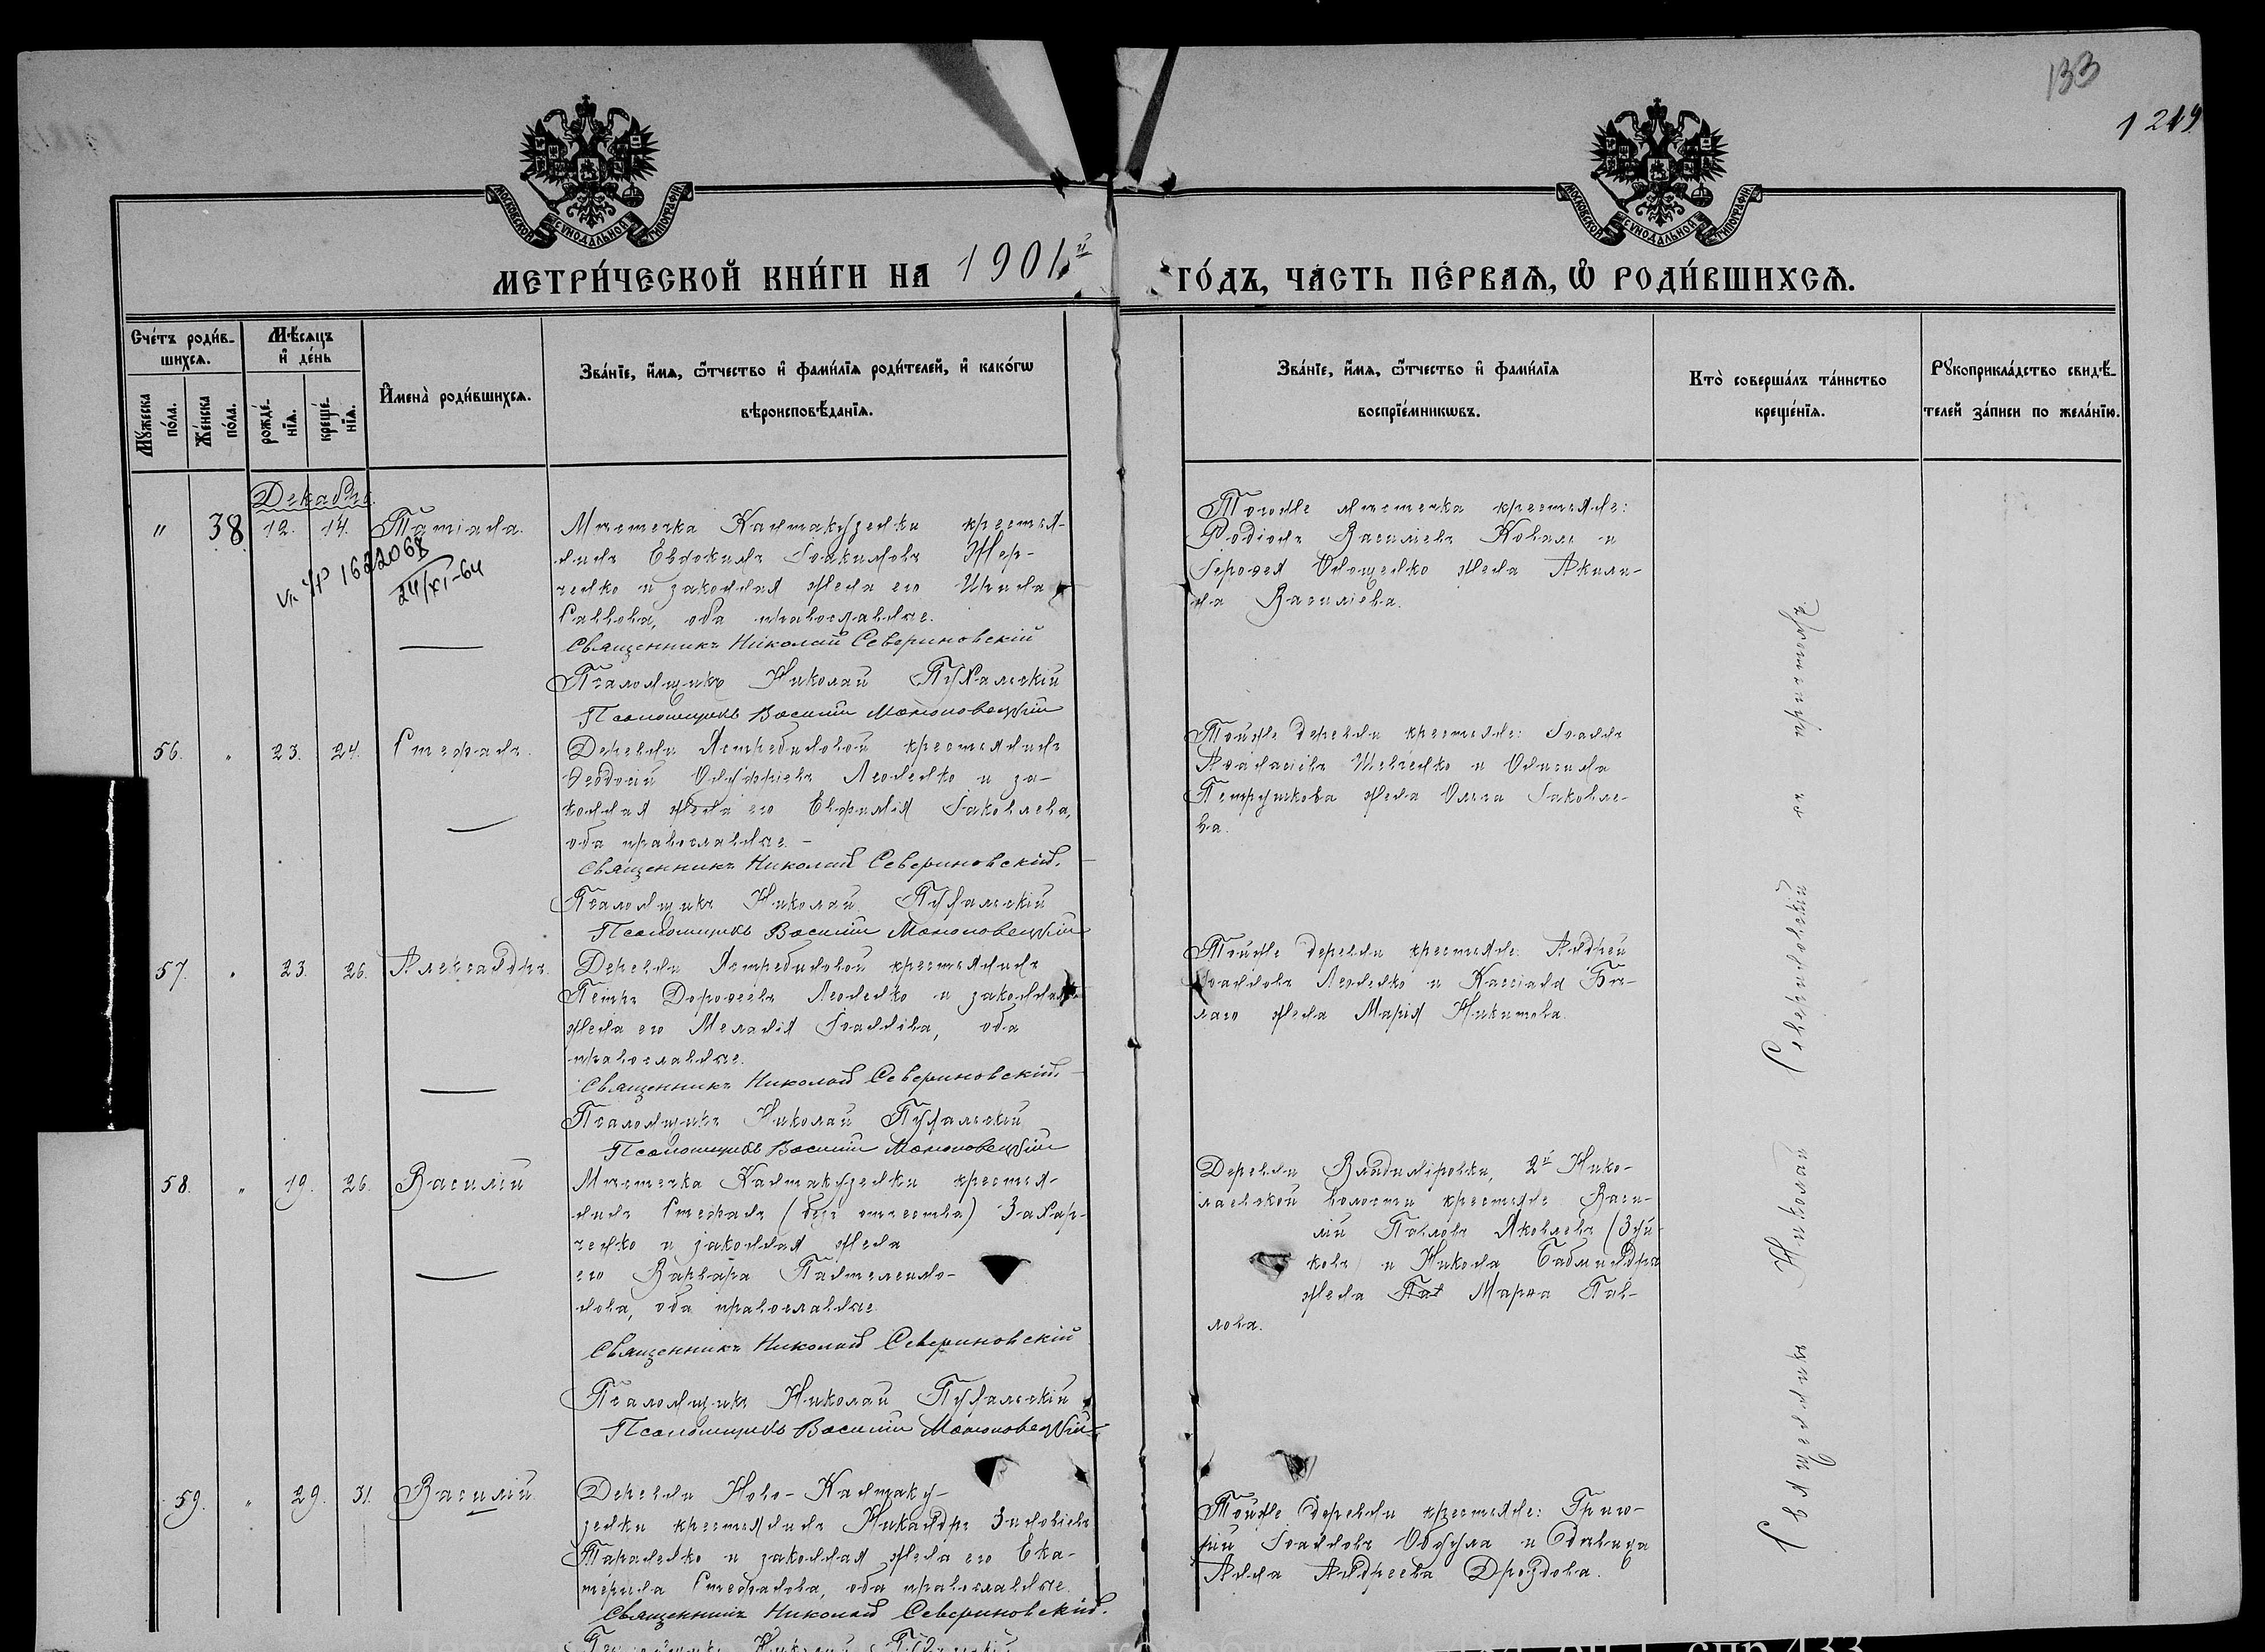 133
1219
МОСКОВСКОЙ СѴНОДАЛЬНОЙ ТИПОГРАФІИ
МОСКОВСКОЙ СѴНОДАЛЬНОЙ ТИПОГРАФІИ
МЕТРИ́ЧЕСКОЙ КНИ́ГИ НА 1901й ГО́ДЪ, ЧА́СТЬ ПЕ́РВАѦ, Ѡ РОДИ́ВШИХСѦ.
Сче́тъ роди́в-
шихсѧ.
Мꙋ́жеска по́ла.
Же́нска по́ла.
Мѣ́сѧцъ
и҆ де́нь
рожде́-
нїѧ.
креще́-
нїѧ.
И҆мена̀ роди́вшихсѧ.
Зва́нїе, и҆́мѧ, ѻ҆́тчество и҆ фами́лїѧ роди́телей, и҆ како́гѡ
вѣроисповѣ́данїѧ.
Зва́нїе, и҆́мѧ, ѻ҆́тчество и҆ фами́лїѧ
воспрїе́мникѡвъ.
Кто̀ соверша́лъ та́инство
креще́нїѧ.
Рꙋкоприкла́дство свидѣ́-
телей за́писи по жела́нїю.
Декабрь.
" 38 12. 14. Татіана.
Мѣстечка Кантакузенки крестья-
нинъ Евдокимъ Іоакимовъ Жер-
ченко и законная жена его Ирина
Саввова, оба православные.
Священникъ Николай Севериновскій
Псаломщикъ Николай Пухальскій
Псаломщикъ Василій
Тогоже мѣстечка крестьяне:
Родіонъ Василіевъ Коваль и
Іерофея Онощенко жена Акили-
на Василіева.
№ 1622068
24/XI-64
56. " 23. 24. Стефанъ.
Деревни Ястребиновой крестьянинъ
Феодосій Онуфріевъ Леоненко и за-
конная жена его Евфимія Іаковлева,
оба православные. -
Священникъ Николай Севериновскій.
Псаломщикъ Николай Пухальскій
Псаломщикъ Василій
Тойже деревни крестьяне: Іоаннъ
Аѳанасіевъ Шевченко и Онисима
Петрушкова жена Ольга Іаковле-
ва.
57. " 23. 26. Александръ.
Деревни Ястребиновой крестьянинъ
Петръ Дороѳеевъ Леоненко и законная
жена его Меланія Іоаннова, оба
православные.
Священникъ Николай Севериновскій.
Псаломщикъ Николай Пухальскій
Псаломщикъ Василій
Тойже деревни крестьяне: Андрей
Іоанновъ Леоненко и Кассіана Бѣ-
лаго жена Марія Никитова.
58. " 19. 26. Василій
Мѣстечка Кантакузенки крестья-
нинъ Стефанъ (безъ отчества) Захар-
ченко и законная жена
его Варвара Пантелеимо-
нова, оба православные.
Священникъ Николай Севериновскій
Псаломщикъ Николай Пухальскій
Псаломщикъ Василій
Деревни Владиміровки, 2й Нико-
лаевской волости крестьяне Васи-
лій Павловъ Яковлевъ
и Никона
жена Марѳа Пав-
лова.
59. " 29. 31. Василій
Деревни Ново-Кантаку-
зенки крестьянинъ Никандръ Зиновіевъ
Тараненко и законная жена его Ека-
терина Стефанова, оба православные.
Священникъ Николай Севериновскій.
Псаломщикъ Николай Пухальскій
Тойже деревни крестьяне: Григо-
рій Іоанновъ и дѣвица
Анна Андреева Дроздова.
Священникъ Николай Севериновскій съ причтомъ.
оп. 1 спр. 433